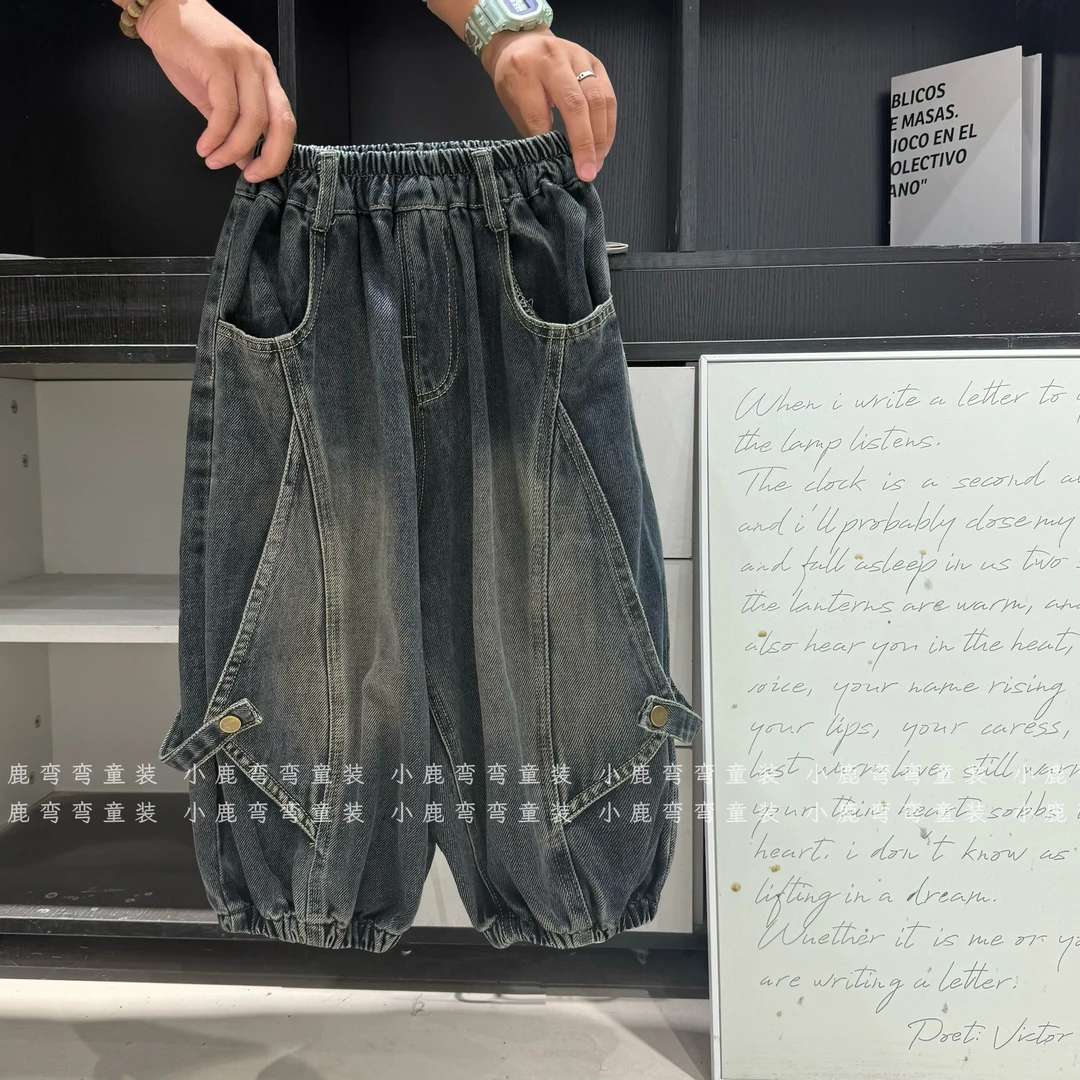 BLICOS
E MASAS.
IOCO EN EL
OLECTIVO
ANO"
When i write a letter to
the lamp listens.
The clock is a second
and i'll probably close my
and fall asleep in us two
the lanterns are warm, and
also hear you in the heat,
voice, your name rising
your lips, your caress,
love still
小鹿弯弯童装 小鹿弯弯童装 小鹿弯弯童装 小鹿弯弯童装
your
heart
小鹿弯弯童装 小鹿弯弯童装 小鹿弯弯童装 小鹿弯弯童装
heart. i don't know as
lifting in a dream.
Wuether it is me or
are writing a letter.
Poet: Victor